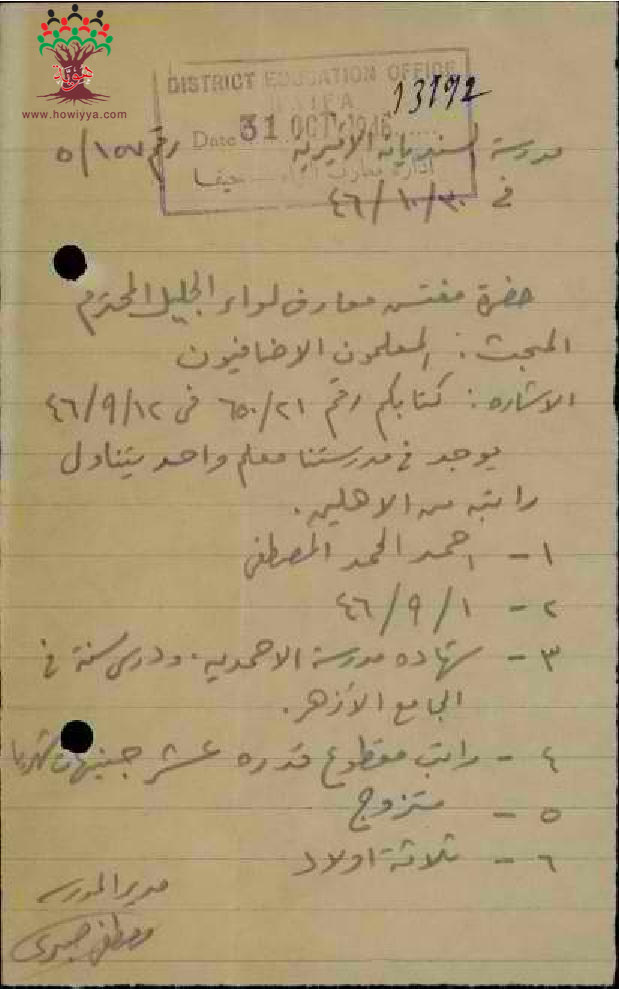 هوية
www.howiyya.com
DISTRICT EDUCATION OFFICE
HAIFA
13192
Date 31 OCT 1946
مدرسة السنديانه الاميريه رقم ٥/١٥٧
ادارة معارف لواء حيفا
في ٤٦/١٠/٣٠
حضرة مفتش معارف لواء الجليل المحترم
المبحث : المعلمون الاضافيون
الاشاره : كتابكم رقم ٦٥٠/٢١ في ٤٦/٩/١٢
يوجد في مدرستنا معلم واحد يتناول
راتبه من الاهلين .
١ - احمد الحمد المصطفى
٢ - ٤٦/٩/١
٣ - شهاده مدرسة الاحمديه . ودرس سنة في
الجامع الأزهر .
٤ - راتب مقطوع قدره عشر جنيهات شهريا
٥ - متزوج
٦ - ثلاثة اولاد
مدير المدرسه
مصطفى